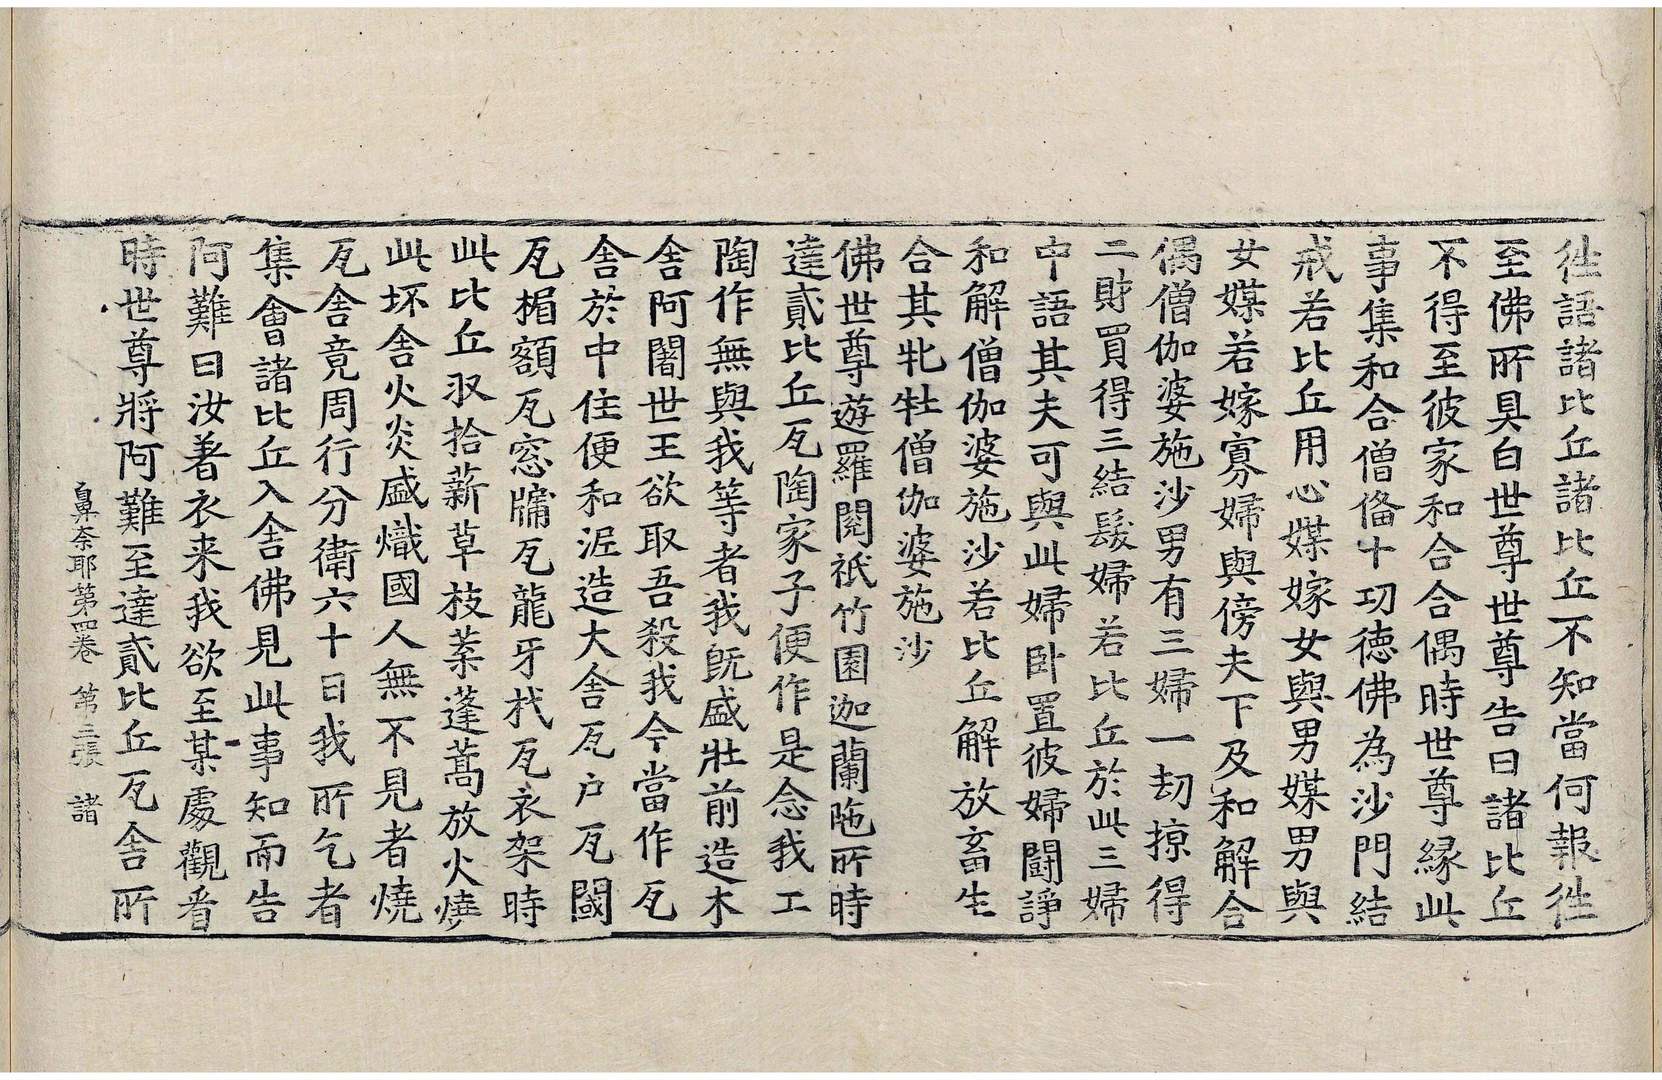 徃語諸比丘諸比丘不知當何報徃
至佛所具白世尊世尊告曰諸比丘
不得至彼家和合合偶時世尊縁此
事集和合僧俻十功德佛為沙門結
戒若比丘用心媒嫁女與男媒男與
女媒若嫁寡婦與傍夫下及和解合
偶僧伽婆施沙男有三婦一刧掠得
二財買得三結髮婦若比丘於此三婦
中語其夫可與此婦卧置彼婦鬪諍
和解僧伽婆施沙若比丘解放畜生
合其牝牡僧伽婆施沙
佛世尊遊羅閱祇竹園迦蘭陁所時
達貳比丘瓦陶家子便作是念我工
陶作無與我等者我旣盛壯前造木
舍阿闍世王欲取吾殺我今當作瓦
舍於中住便和泥造大舍瓦户瓦閫
瓦楣額瓦窓牖瓦龍牙杙瓦衣架時
此比丘収拾薪草枝葉蓬蒿放火燒
此坏舍火炎盛熾國人無不見者燒
瓦舍竟周行分衛六十日我所乞者
集會諸比丘入舍佛見此事知而告
阿難曰汝著衣来我欲至某處觀看
時世尊將阿難至達貳比丘瓦舍所
鼻奈耶第四卷 第三張 諸